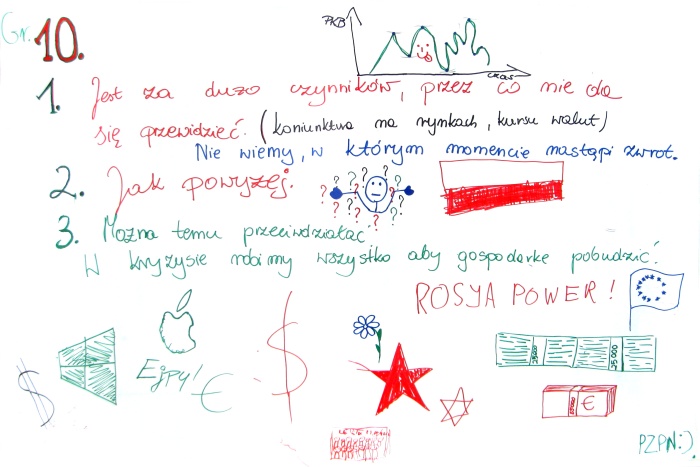 Gr. 10.
PKB
czas
1. Jest za dużo czynników, przez co nie da
się przewidzieć. (koniunktura na rynkach, kursu walut)
Nie wiemy, w którym momencie nastąpi zwrot.
2. Jak powyżej.
? ? ? ? ? ? ? ? ? ? ?
3. Można temu przeciwdziałać
W kryzysie robimy wszystko aby gospodarkę pobudzić.
ROSYA POWER!
Ejpy!
$ € $
25000 25 000
€
PZPN:).